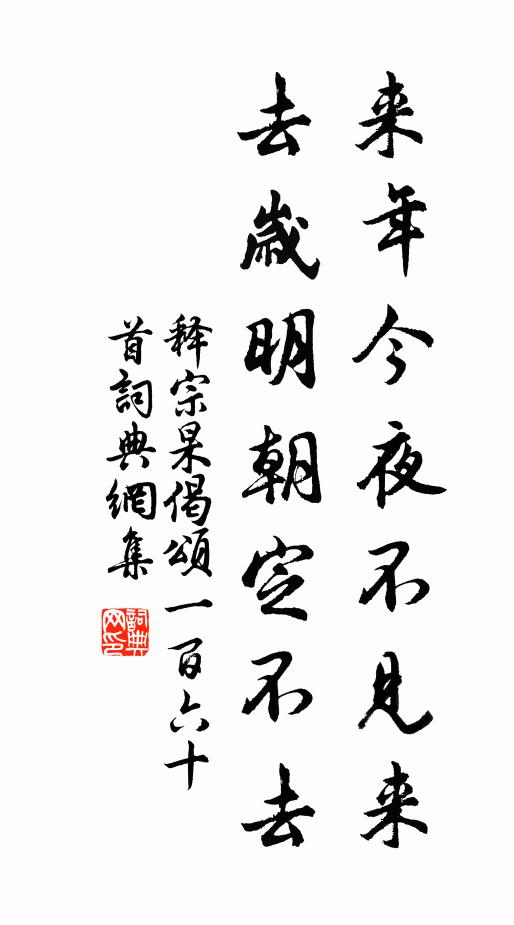 来年今夜不见来
去岁明朝定不去
释宗杲偈颂一百六十
首词典网集
詞典
网印